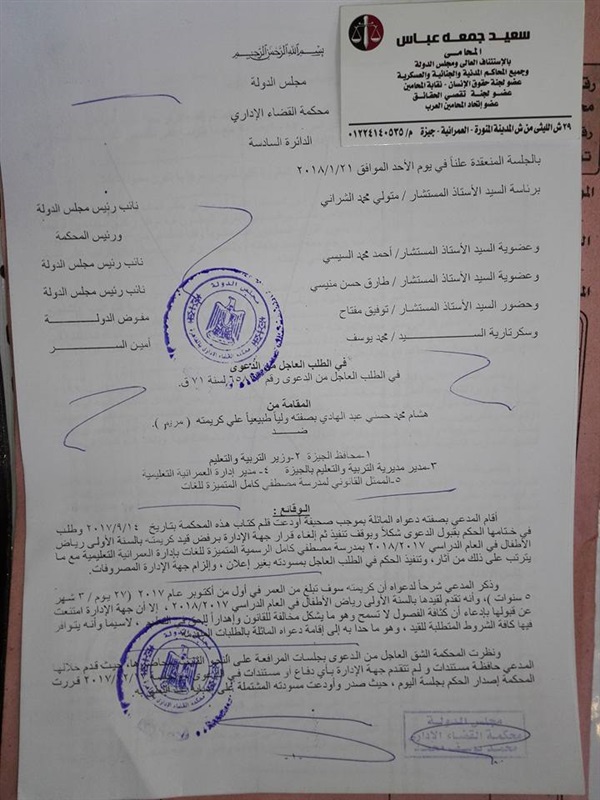 سعيد جمعه عباس
المحامى
بالإستئناف العالى ومجلس الدولة
وجميع المحاكم المدنية والجنائية والعسكرية
عضو لجنة حقوق الإنسان - نقابة المحامين
عضو لجنة تقصي الحقائق
عضو إتحاد المحامين العرب
٢٩ ش الليثى من ش المدينة المنورة - العمرانية - جيزة م/ ٠١٢٢٤١٤٠٥٣٥
بسم الله الرحمن الرحيم
مجلس الدولة
محكمة القضاء الإداري
الدائرة السادسة
بالجلسة المنعقدة علناً في يوم الأحد الموافق ٢٠١٨/١/٢١
برئاسة السيد الأستاذ المستشار / متولي محمد الشراني نائب رئيس مجلس الدولة
ورئيس المحكمة
وعضوية السيد الأستاذ المستشار/ أحمد محمد السيسي نائب رئيس مجلس الدولة
وعضوية السيد الأستاذ المستشار / طارق حسن منيسي نائب رئيس مجلس الدولة
وحضور السيد الأستاذ المستشار / توفيق مفتاح مفوض الدولـــــة
وسكرتارية الســـــــــــــيد / محمد يوسف أمين الســـــــر
في الطلب العاجل من الدعوى
في الطلب العاجل من الدعوى رقم لسنة ٧١ ق.
المقامة من
هشام محمد حسني عبد الهادي بصفته ولياً طبيعياً علي كريمته ( مريم ).
ضــــــد
١-محافظ الجيزة ٢-وزير التربية والتعليم
٣-مدير مديرية التربية والتعليم بالجيزة ٤- مدير إدارة العمرانية التعليمية
٥-الممثل القانوني لمدرسة مصطفي كامل المتميزة للغات
الوقائع :
أقام المدعي بصفته دعواه الماثلة بموجب صحيفة أودعت قلم كتاب هذه المحكمة بتاريخ ٢٠١٧/٩/١٤ وطلب
في ختامها الحكم بقبول الدعوى شكلاً وبوقف تنفيذ ثم إلغاء قرار جهة الإدارة برفض قيد كريمته بالسنة الأولى رياض
الأطفال في العام الدراسي ٢٠١٨/٢٠١٧ بمدرسة مصطفي كامل الرسمية المتميزة للغات بإدارة العمرانية التعليمية مع ما
يترتب على ذلك من آثار، وتنفيذ الحكم في الطلب العاجل بمسودته بغير إعلان ، وإلزام جهة الإدارة المصروفات.
وذكر المدعي شرحاً لدعواه أن كريمته سوف تبلغ من العمر في أول من أكتوبر عام ٢٠١٧ (٢٧ يوم / ٣ شهر
٥ سنوات )، وأنه تقدم لقيدها بالسنة الأولى رياض الأطفال في العام الدراسي ٢٠١٨/٢٠١٧ ، إلا أن جهة الإدارة امتنعت
عن قبولها بإدعاء أن كثافة الفصول لا تسمح وهو ما يشكل مخالفة للقانون وإهداراً ، لاسيما وأنه يتوافر
فيها كافة الشروط المتطلبة للقيد ، وهو ما حدا به إلى إقامة دعواه الماثلة بالطلبات
ونظرت المحكمة الشق العاجل من الدعوى بجلسات المرافعة على النحو حيث قدم خلالها
المدعي حافظة مستندات و لم تتقدم جهة الإدارة بأي دفاع أو مستندات في قررت
المحكمة إصدار الحكم بجلسة اليوم ، حيث صدر وأودعت مسودته المشتملة علي
مجلس الدولة
محكمة القضاء الإدارى